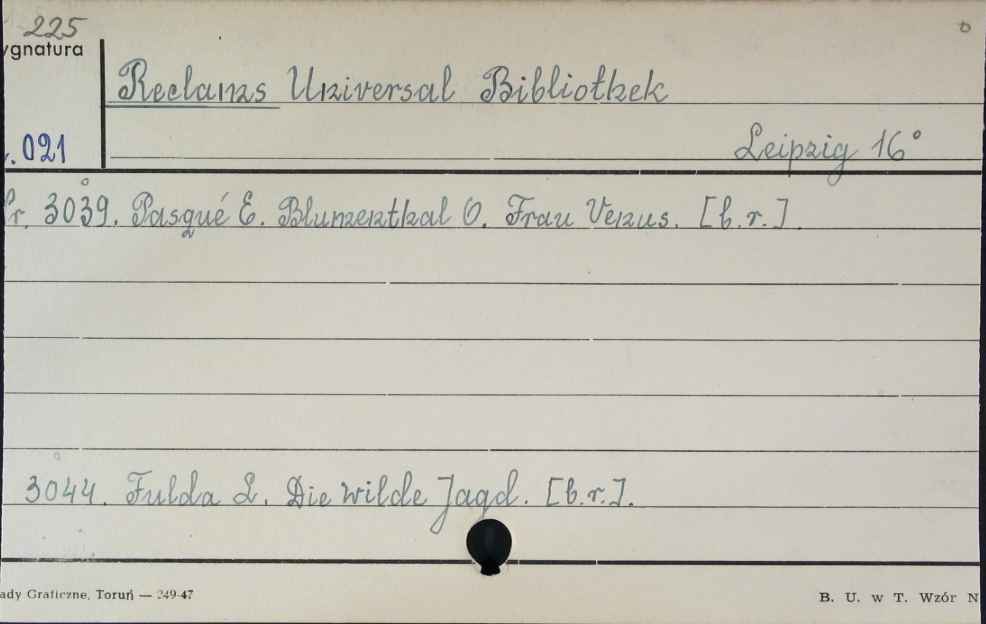 225
ygnatura
Reclams Universal Bibliothek
. 021
Leipzig 16°
r. 3039. Pasqué E. Blumenthal O. Frau Venus. [b.r.].
3044. Fulda L. Die wilde Jagd. [b.r.].
ady Graficzne, Toruń — 249-47
B. U. w T. Wzór N